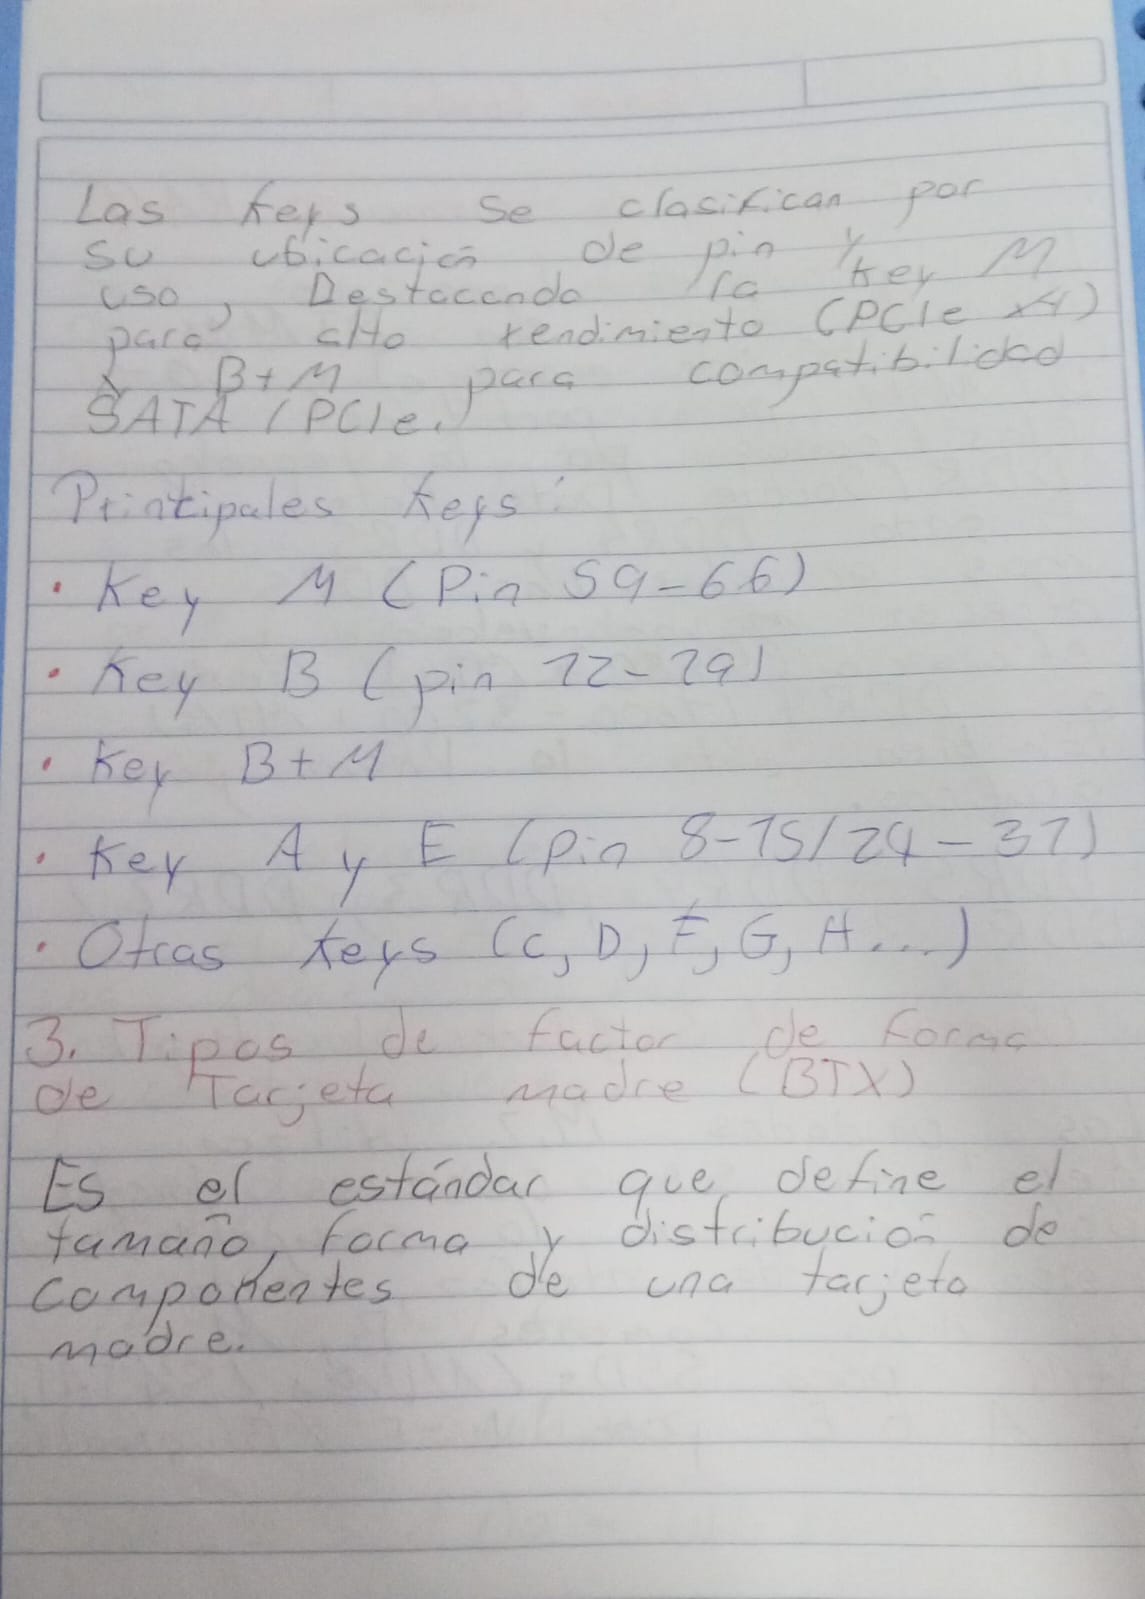 Las keys se clasifican por
su ubicación de pin y
uso, Destacando la key M
para alto rendimiento (PCIe x4)
y B+M para compatibilidad
SATA / PCIe.
Principales keys:
• Key M (Pin 59-66)
• Key B (pin 12-19)
• Key B+M
• Key A y E (pin 8-15/24-31)
• Otras keys (C, D, F, G, H...)
3. Tipos de factor de forma
de Tarjeta madre (BTX)
Es el estándar que define el
tamaño, forma y distribución de
componentes de una tarjeta
madre.